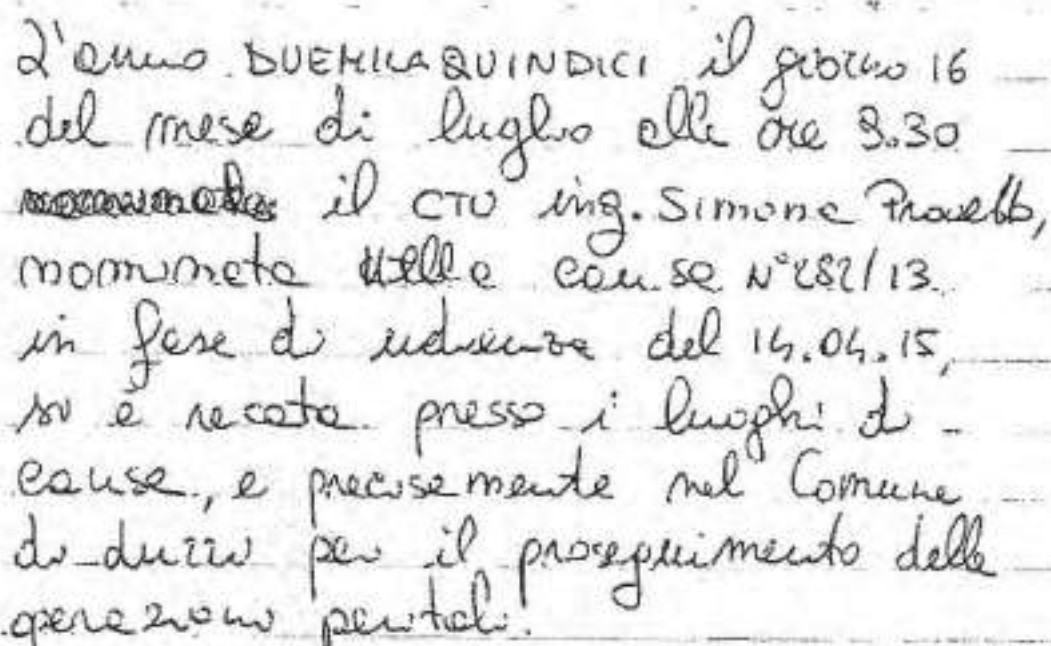 L'anno DUEMILAQUINDICI il giorno 16
del mese di luglio alle ore 9.30
il CTU ing. Simona
nominata nella causa N°282/13
in fase di udienza del 14.04.15,
si è recata presso i luoghi di
causa, e precisamente nel Comune
di per il proseguimento delle
operazioni peritali.